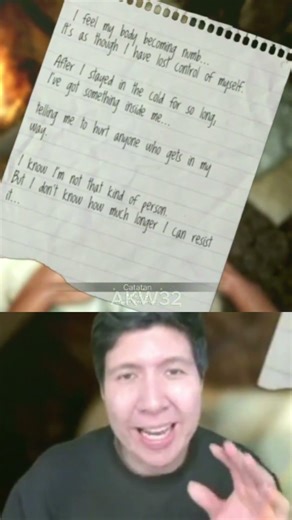 I feel my body becoming numb...
It's as though I have lost control of myself.
After I stayed in the cold for so long,
I've got something inside me...
telling me to hurt anyone who gets in my
way...
I know I'm not that kind of person.
But I don't know how much longer I can resist
it...
Catatan
AKW32